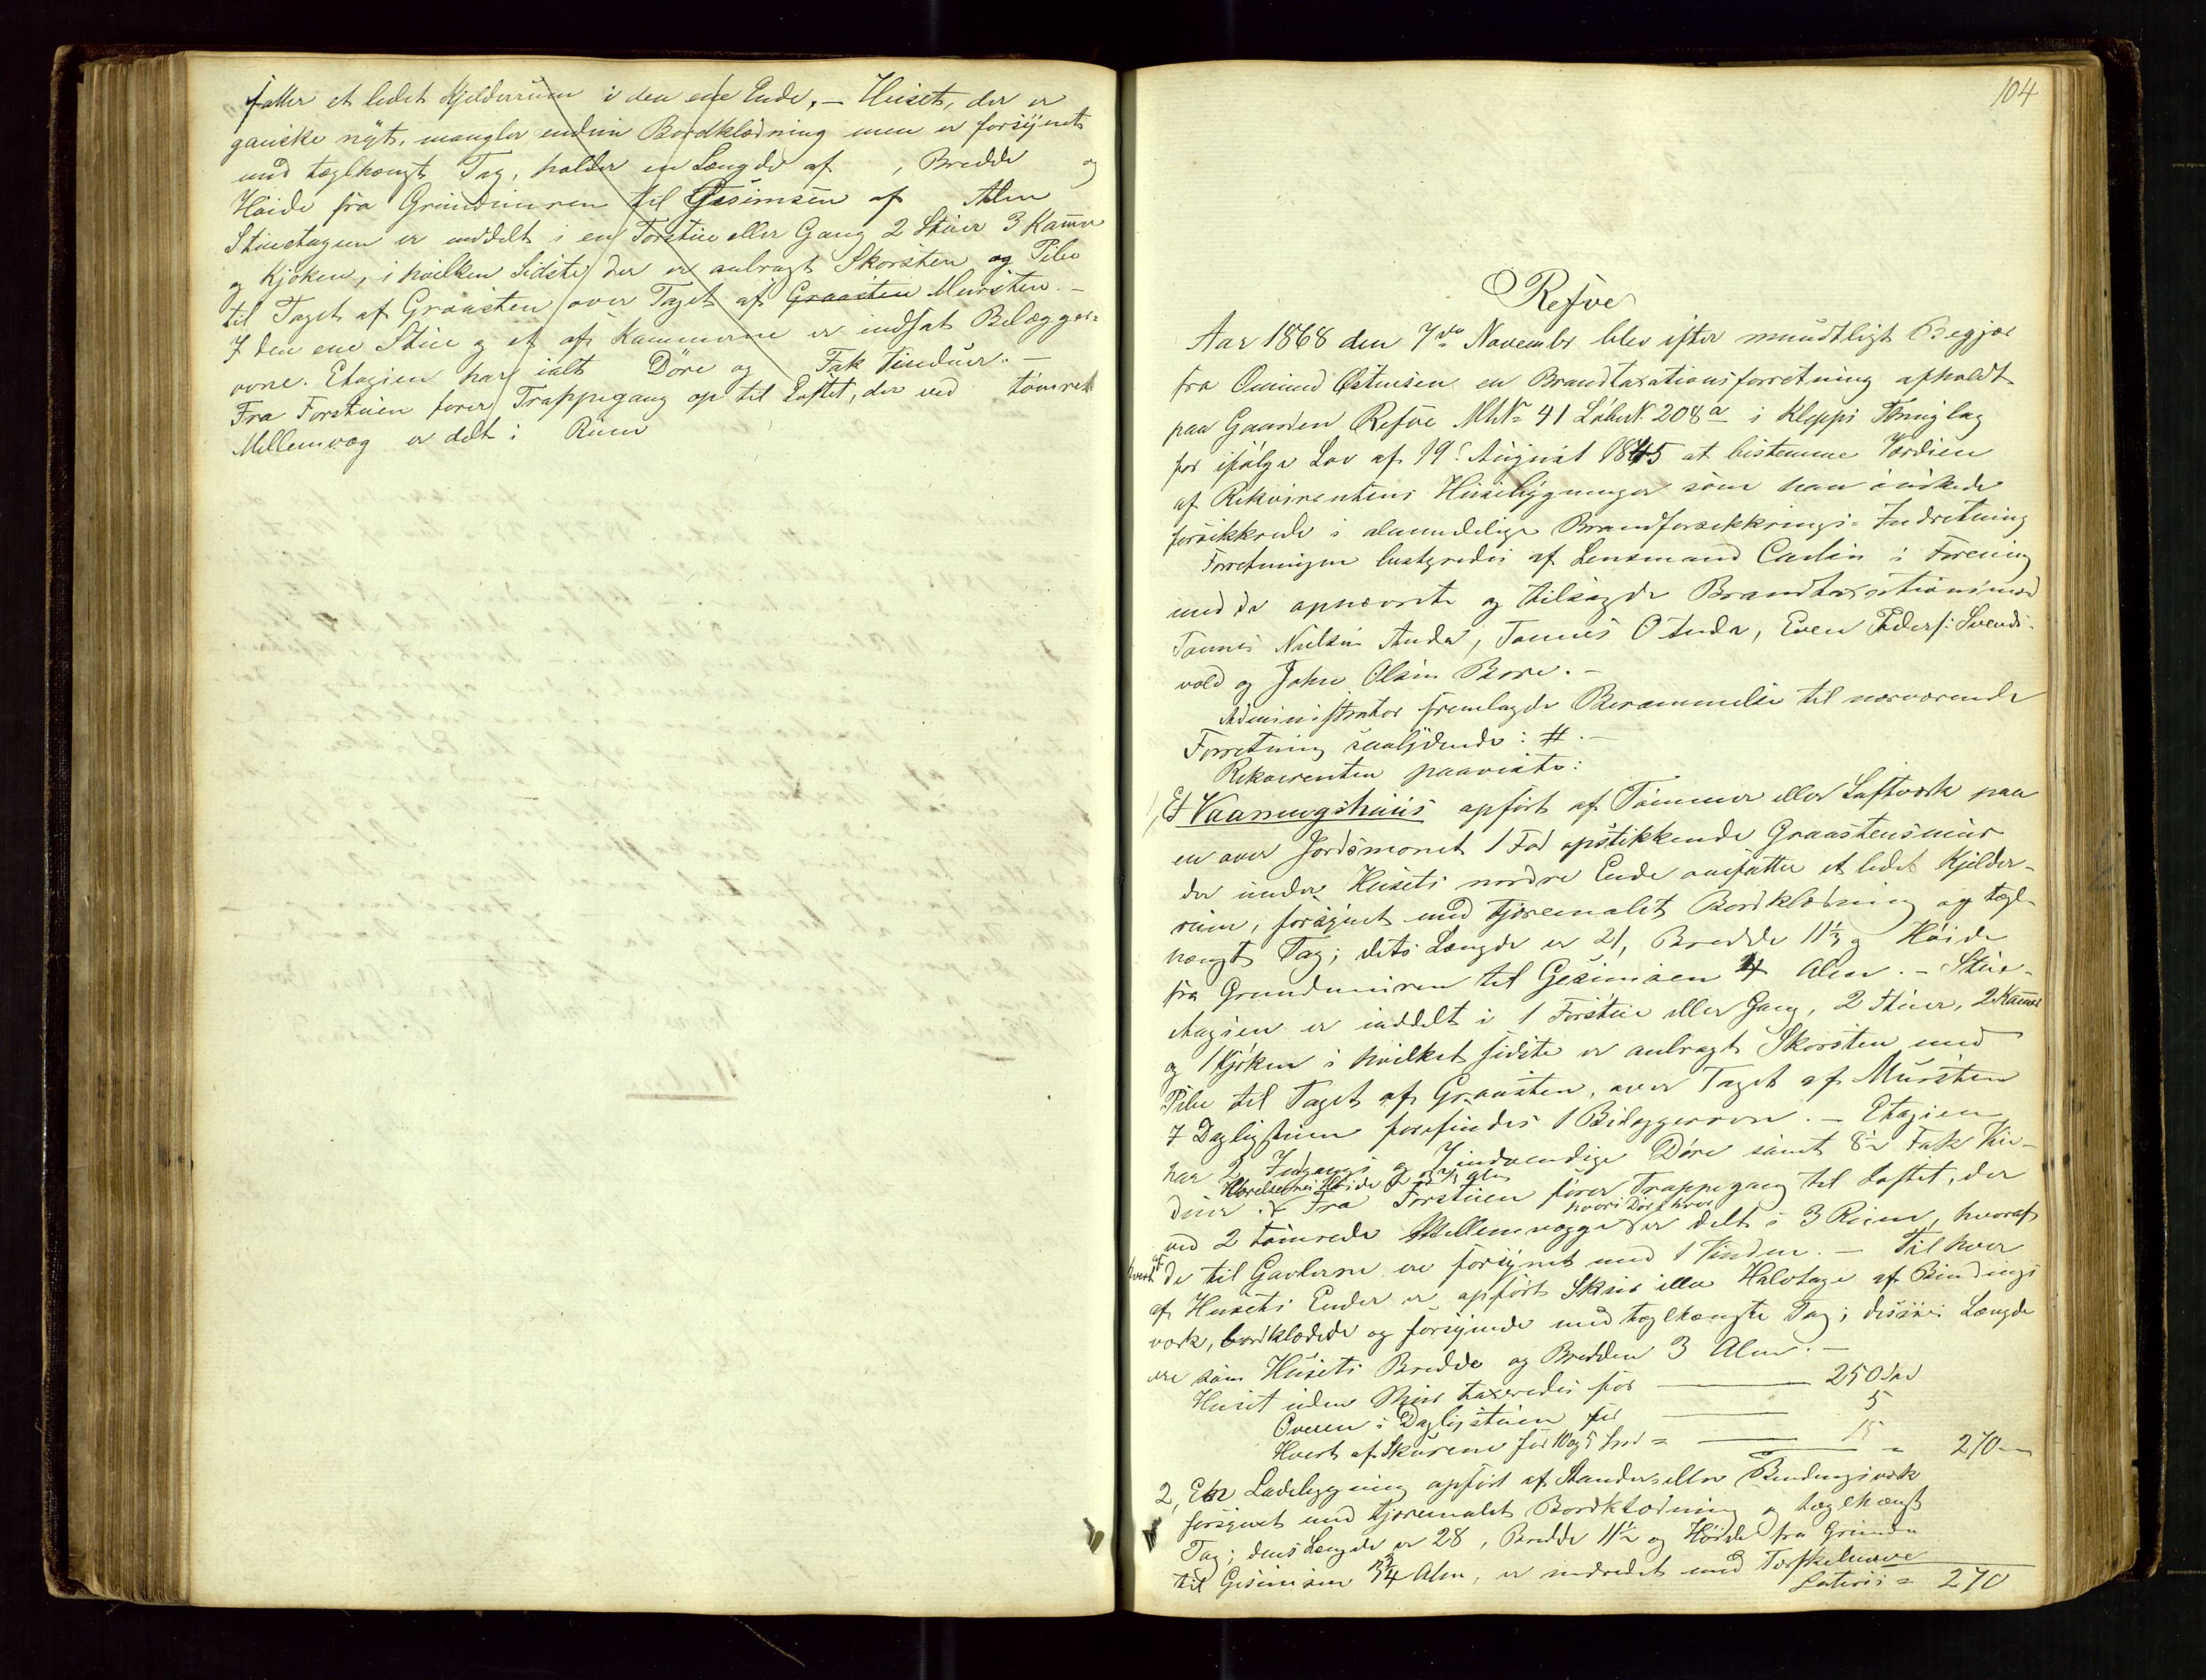 fatter et ledet Kjelderrum i den ene Ende. – Huset, der er
ganske nyt, mangler endnu Bordklædning men er forsynet
med tæglhængt Tag, holder en Længde af , Bredde og
Høide fra Grundmuren til Gesimsen af Alen
Stueetagen er inddelt i en Forstue eller Gang 2 Stuer 3 Kamre
og Kjøken, i hvilken Sidste der er anbragt Skorsten og Pibe
til Taget af Graasten over Taget af Graasten Mursten. –
I den ene Stue og et af Kammerne er indsat Belægger=
ovne. Etagien har ialt Döre og Fak Vinduer. –
Fra Forstuen fører Trappegang op til Loftet, der ved tømret
Mellemvæg er delt i Rum
104
Refve
Aar 1868 den 7de November blev efter mundtligt Begjær
fra Omund Østensen en Brandtaxationsforretning afholdt
paa Gaarden Refve MtNo 41 LøbeN 208a i Klepps Thinglag
for ifølge Lov af 19 August 1845 at bestemme Værdien
af Rekvirentens Husebygninger som han ønskede
forsikkrede i almindelige Brandforsikkrings=Indretning
Forretningen bestyredes af Lensmand Carlsen i Forening
med de opnævnte og tilsagde Brandtaxationsmænd
Tønnes Nielsen Anda, Tønnes O Anda, Even Peders: Svends-
vold og John Olsen Bore. –
Administrator fremlagde Berammelse til nærværende
Forretning saalydende: #. –
Rekvirenten paaviste:
1, Et Vaaningshuus opført af Tømmer eller Laftværk paa
en over Jordsmonet 1 Fod opstikkende Graastensmur
der under Husets nordre Ende omfatter et ledet Kjelder-
rum, forsynet med tjæremalet Bordklædning og tægl-
hængt Tag; dets Længde er 21, Bredde 11⅓ og Høide
fra Grundmuren til Gesimsen 4 Alen. – Stue-
etagien er inddelt i 1 Forstue eller Gang, 2 Stuer, 2 Kamre
og 1 Kjøken i hvilket sidste er anbragt Skorsten med
Pibe til Taget af Graasten, over Taget af Mursten
I Dagligstuen forefindes 1 Bilæggerovn. – Etagien
har 2 Indgangs og 7 indvendige Döre samt 8½ Fak Vin-
Værelsernes Høide
duer. Fra Forstuen fører Trappegang til Loftet, der
hvori Dør i hver
ved 2 tømrede Mellemvægge er delt i 3 Rum, hvoraf
hvert af de til Gavlerne ere forsynet med 1 Vindue. – Til hver
af Husets Ender er opført Skur eller Halvtage af Bindings
værk, bordklædede og forsynede med tæglhængte Tag; disses Længde
ere som Husets Bredde og Bredden 3 Alen. –
Huset uden Skur taxeredes for — 250 Spd
Ovnen i Dagligstuen for — 5
Hvert af Skurene for 10 og 5 Spd = — 15 = 270 –
2, En Ladebygning opført af Stander eller Bindingsværk
forsynet med tjæremalet Bordklædning og tæglhængt
Tag; dens Længde er 28, Bredde 11½ og Høide fra Grunden
til Gesimsen Alen, er indredet med Tærskeloeve
Lateris = 270